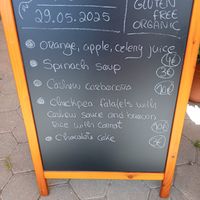 29.05.2025
GLUTEN
FREE
ORGANIC
Orange, apple, celery juice
4€
Spinach soup
3€
Cashew carbonara
10€
Chickpea falafels with
cashew sauce and brown
rice with carrot
10€
Chocolate cake